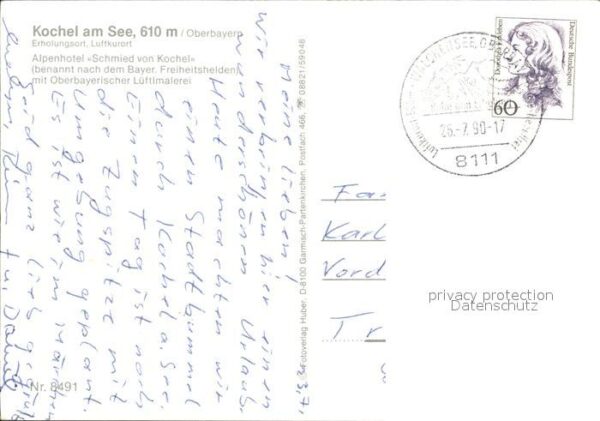 Kochel am See, 610 m / Oberbayern
Erholungsort, Luftkurort
Alpenhotel «Schmied von Kochel»
(benannt nach dem Bayer. Freiheitshelden)
mit Oberbayerischer Lüftlmalerei
23.7.
Meine Lieben!
wir verbringen hier einen
wunderschönen Urlaub.
Heute machten wir
einen Stadtbummel
durch Kochel a. See.
Einen Tag ist noch
die Zugspitze mit
Umgebung geplant.
Es ist wie im Märchen
Seid ganz lieb gegrüßt
Nr. 8491
Fotoverlag Huber, D-8100 Garmisch-Partenkirchen, Postfach 466, ☎ 08821/59048
26.-7.90-17
8111
Deutsche Bundespost
60
Fa
Karl
Vord
Tr
privacy protection
Datenschutz